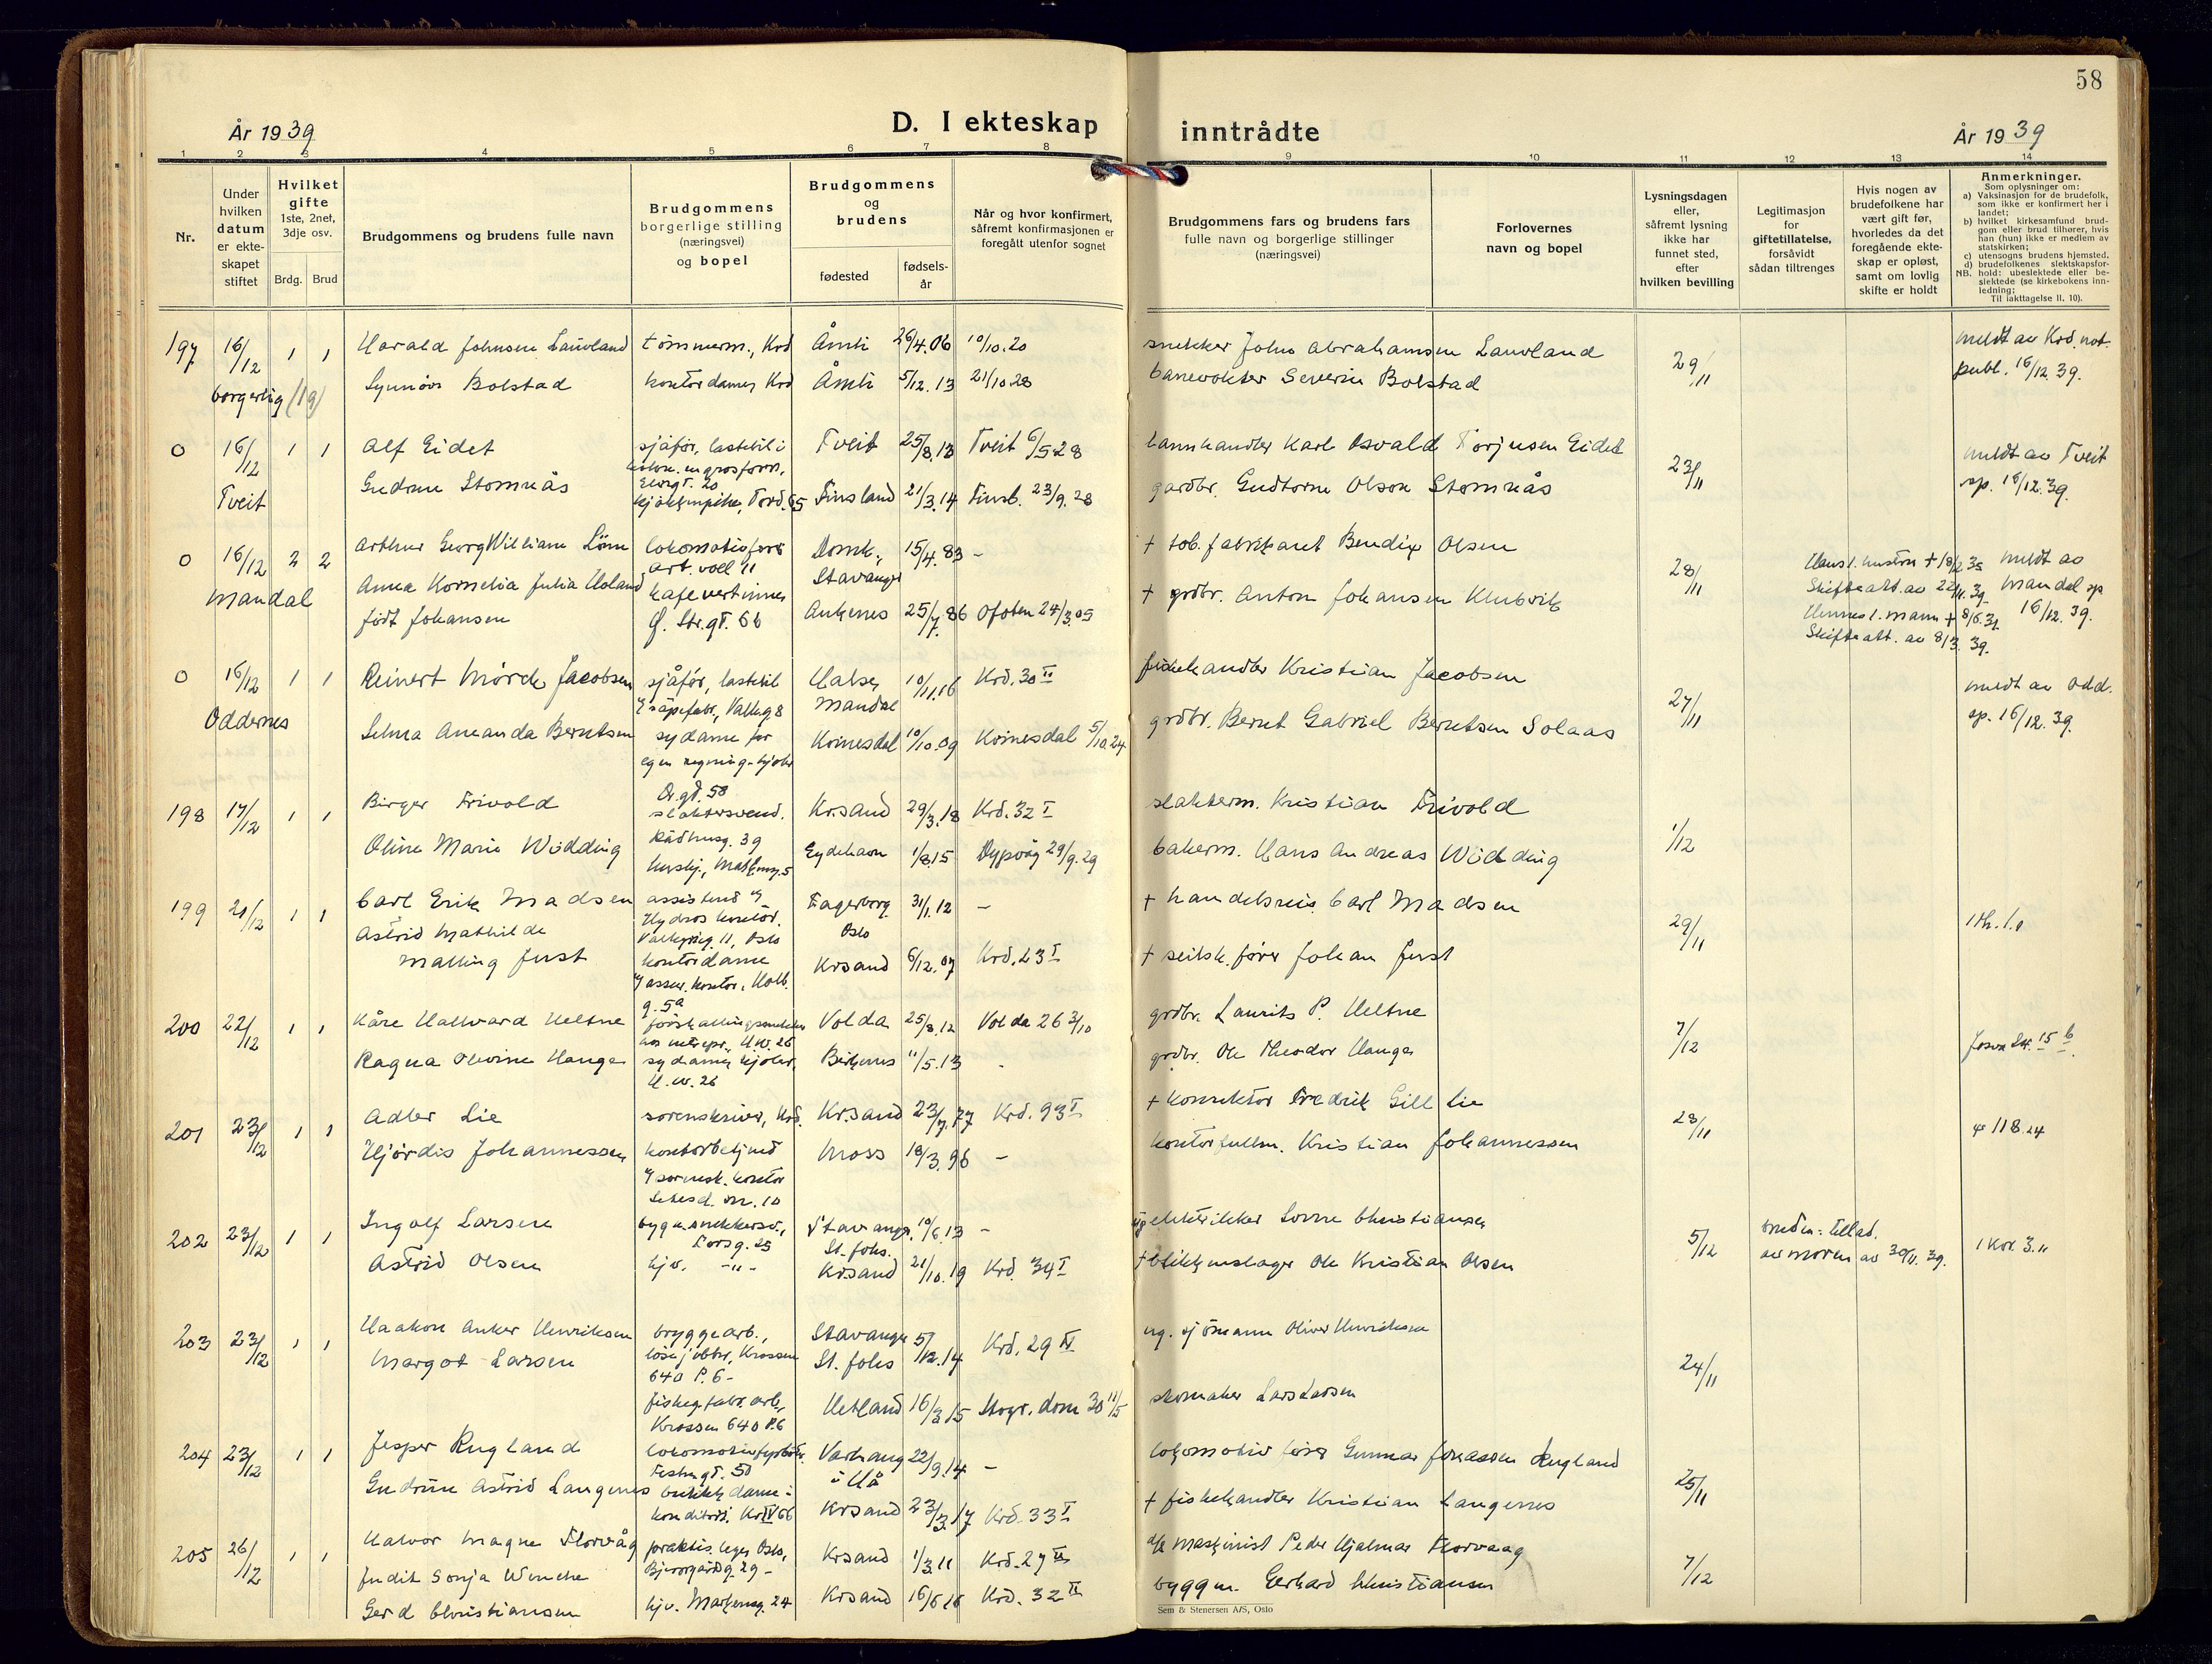 58
År 1939
D. I ekteskap inntrådte
År 1939
1 2 3 4 5 6 7 8 9 10 11 12 13 14
Nr.
Under hvilken datum er ekteskapet stiftet
Hvilket gifte 1ste, 2net, 3dje osv.
Brdg. Brud
Brudgommens og brudens fulle navn
Brudgommens borgerlige stilling (næringsvei) og bopel
Brudgommens og brudens
fødested
fødselsår
Når og hvor konfirmert, såfremt konfirmasjonen er foregått utenfor sognet
Brudgommens fars og brudens fars fulle navn og borgerlige stillinger (næringsvei)
Forlovernes navn og bopel
Lysningsdagen eller, såfremt lysning ikke har funnet sted, efter hvilken bevilling
Legitimasjon for giftetillatelse, forsåvidt sådan tiltrenges
Hvis nogen av brudefolkene har vært gift før, hvorledes da det foregående ekteskap er opløst, samt om lovlig skifte er holdt
Anmerkninger.
Som oplysninger om:
a) Vaksinasjon for de brudefolk, som ikke er konfirmert her i landet;
b) hvilket kirkesamfund brudgom eller brud tilhører, hvis han (hun) ikke er medlem av statskirken;
c) utensogns brudens hjemsted.
d) brudefolkenes slektskapsforhold: ubeslektede eller beslektede (se kirkebokens innledning;
NB. Til iakttagelse II. 10).
197 16/12 1 1 Harald Johnsen Lauvland tømmerm., Krd Åmli 26/4.06 10/10.20 snekker John Abrahamsen Lauvland 29/11 meldt av Krd. not.
Synnøve Bolstad kontordame, Krd Åmli 5/12.13 21/10.28 banevokter Severin Bolstad publ. 16/12.39.
borgerlig (19)
0 16/12 1 1 Alf Eidet sjåfør, lastebil i Tveit 25/8.13 Tveit 6/5 28 Karl Osvald Torjusen Eidet 23/11 meldt av Tveit
Tveit Gudrun Stomnås kjøkkenpike, Tord. 65 Finsland 21/3.14 Finsl. 23/9.28 gardbr. Gudtorm Olson Stomnås sp. 16/12.39.
0 16/12 2 2 Arthur Georg William Lönn lokomotivfører Domk., 15/4.83 - + tob. fabrikant Bendix Olsen 28/11 Hans f. hustru + 18/2 35 meldt av
Mandal Art. voll 11 Stavanger Skifteatt. av 22/11.39. Mandal sp
Anna Kornelia Julia Holand kafevertinne Ankenes 25/7.86 Ofoten 24/3.05 + grdbr. Anton Johansen Klubvik Hennes f. mann + 8/6.31 16/12.39.
født Johansen Ø. Str.gt. 66 Skifteatt. av 8/3.39.
0 16/12 1 1 Reinert Mørch Jacobsen sjåfør, lastebil Halse, 10/11.16 Krd. 30 II fiskehandler Kristian Jacobsen 27/11 meldt av Odd.
Oddernes såpefabr., Valh.g 8 Mandal sp. 16/12.39.
Selma Amanda Berntsen sydame for Kvinesdal 10/10.09 Kvinesdal 5/10.24 grdbr. Bernt Gabriel Berntsen Solaas
egen regning - kjoler
Dr.gt. 58
198 17/12 1 1 Birger Trivold slaktersvend. Kr.sand 29/3.18 Krd. 32 I slakterm. Kristian Trivold 1/12
Rådhusg. 39
Oline Marie Wödding Eydehavn 1/8.15 Dypvåg 29/9.29 bakerm. Hans Andreas Wödding
199 20/12 1 1 Carl Erik Madsen assistent v Fagerborg 31/1.12 - + handelsreis. Carl Madsen 29/11
Hydros kontor. Oslo
Astrid Mathilde Valkyrieg. 11, Oslo
Malling Just kontordame Krsand 6/12.07 Krd. 23 I + seilsk. fører Johan Just
v assur. kontor, Holb.
g. 5a
200 22/12 1 1 Kåre Hallvard Heltne Volda 25/8.12 Volda 26 3/10 grdbr. Laurits P. Heltne 7/12 Josva 24. 15 b
Ragna Olevine Hauge sydame kjoler, Birkenes 11/5.13 - grdbr. Ole Theodor Hauge
H.W. 26
201 23/12 1 1 Adler Lie sorenskriver, Krd. Kr.sand 23/7.77 Krd. 93 I + konrektor Fredrik Gill Lie 28/11 118.24
Hjørdis Johannessen kontorbetjent Moss 18/3.96 - kontorfullm. Kristian Johannessen
v sorensk. kontor
202 23/12 1 1 Ingolf Larsen bygn. snekkersv., Stavanger, 10/6.13 - elektrikker Christiansen 5/12 1 Kor. 3.11
Torsg. 25 St. Johs.
Astrid Olsen hjv. -"- Krsand 21/10.19 Krd. 34 I + blikkenslager Ole Kristian Olsen av moren av 30/11.39.
203 23/12 1 1 Haakon Anker Henriksen bryggearb., Stavanger 5/12.14 Krd. 29 IV ug. sjömann Oliver Henriksen 24/11
Margot Larsen løsejobber, Krossen St. Johs
640 P. 6-
Hetland 16/3 15 Stvgr. dom 30 11/5 skomaker Lars Larsen
Krossen 640 P.6
204 23/12 1 1 Jesper Rugland lokomotivfyrbøter. Varhaug 22/9.14 - lokomotivfører Gunnar Jonassen Rugland 25/11
Festn.gt. 50 i Hå
Gudrun Astrid Langenes butikkdame i Krsand 23/3.17 Krd. 33 I + fiskehandler Kristian Langenes
konditori. Kr IV 66
205 26/12 1 1 Halvor Magne Florvåg praktis. lege, Oslo, Krsand 1/3.11 Krd. 27 II maskinist Peder Hjalmar Florvaag 7/12
Judit Sonja Wenche
Gerd Christiansen hjv. Markensg. 24 Krsand 16/6 16 Krd. 32 II byggm. Gerhard Christiansen
Sem & Stenersen A/S, Oslo